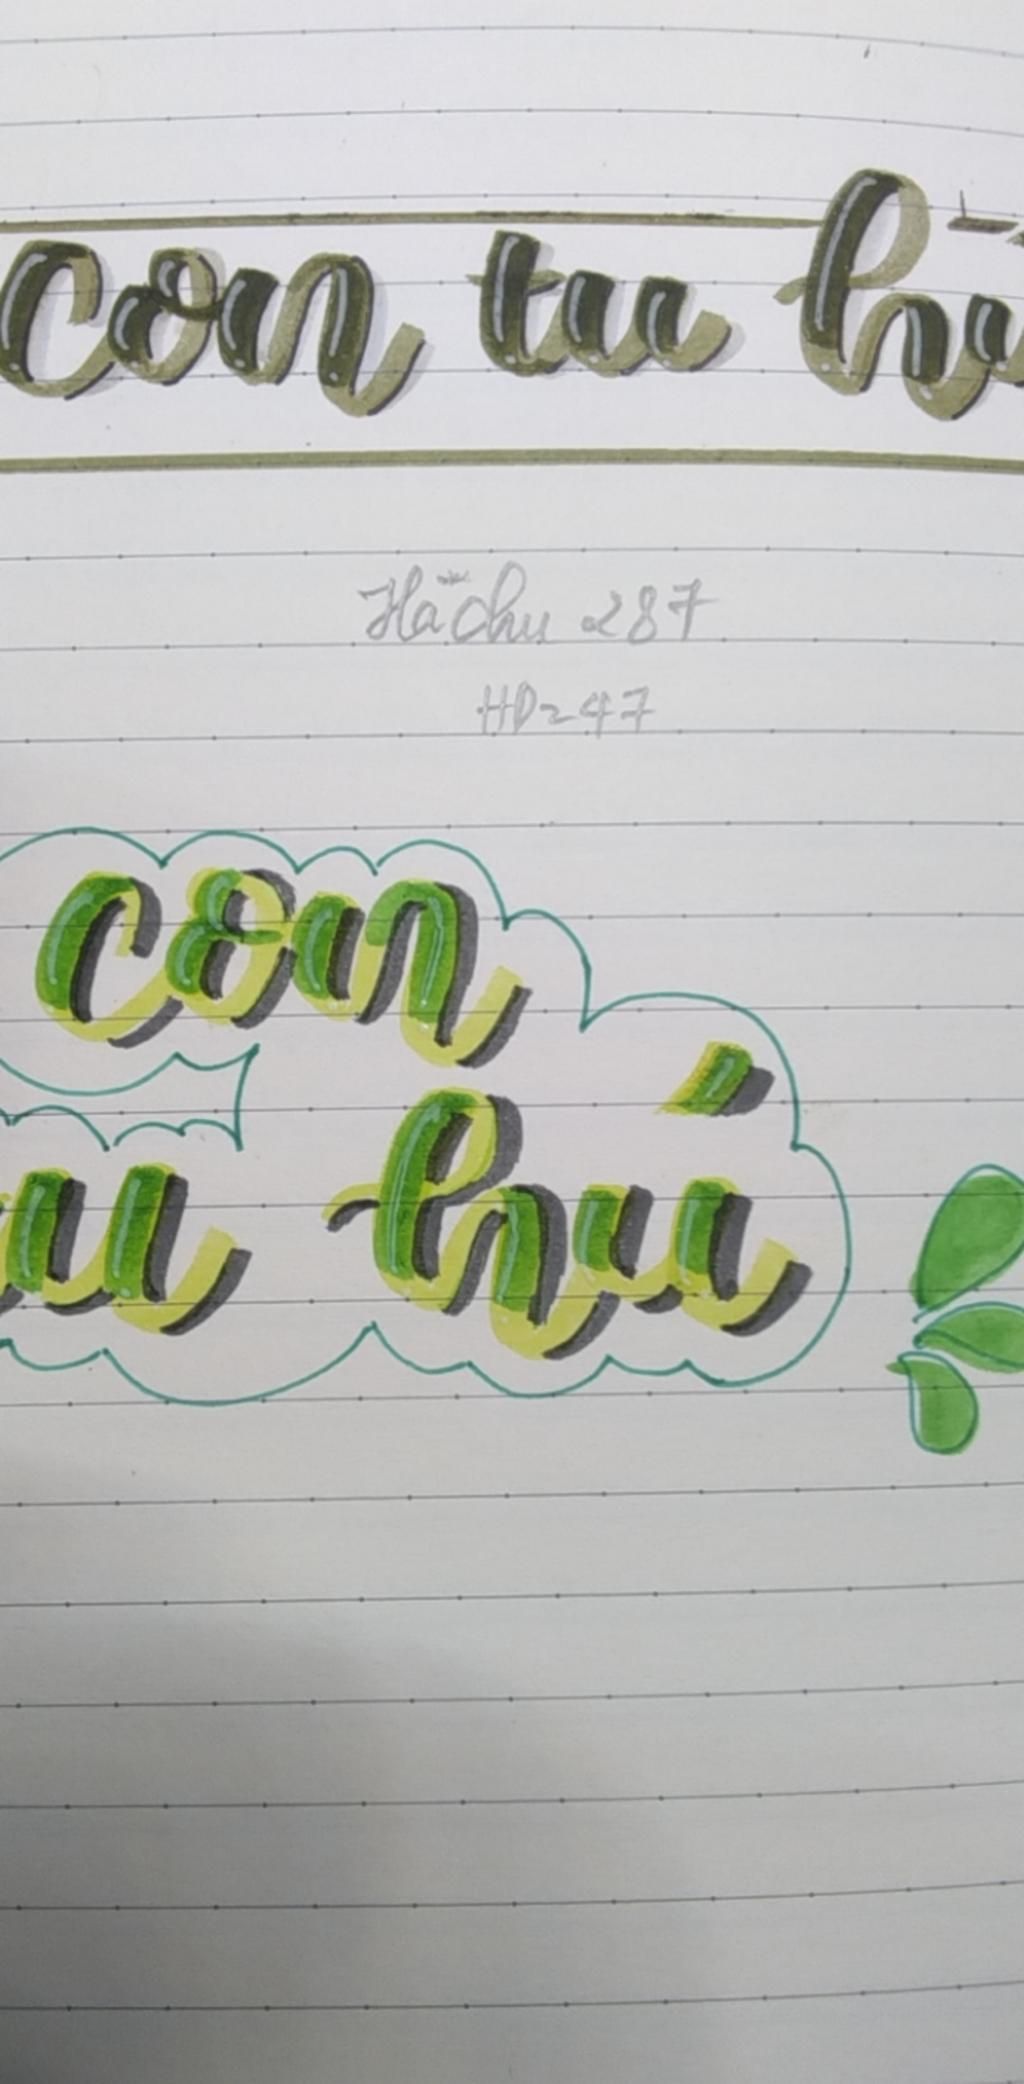 con tu hu
Hà chu 287
HD247
con
hú